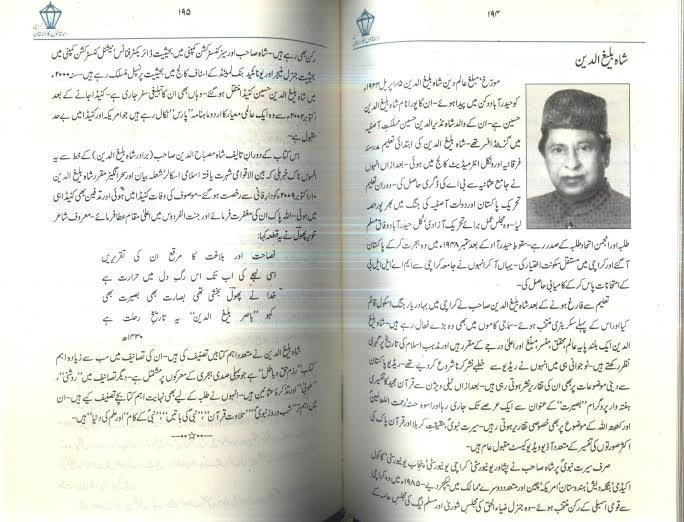 ۱۹۴
شاہ بلیغ الدین
مورخ، مبلغ عالم دین شاہ بلیغ الدین ۱۵/اپریل ۱۹۲۳ء
کو حیدرآباد دکن میں پیدا ہوئے۔ ان کا پورا نام شاہ بلیغ الدین
حسین ہے۔ ان کے والد شاہ نذیر الدین حسین مملکت آصفیہ
میں گزیٹڈ افسر تھے۔ شاہ بلیغ الدین کی ابتدائی تعلیم مدرسہ
فرقانیہ اور ونگل انٹرمیڈیٹ کالج میں ہوئی۔ بعد ازاں انہوں
نے جامعہ عثمانیہ سے بی اے کی ڈگری حاصل کی۔ دورانِ تعلیم
تحریک پاکستان اور دولت آصفیہ کی جنگ میں بھرپور حصہ
لیا۔ وہ مجلس عمل برائے تحریک آزادی کل حیدرآباد وفاق مسلم
طلبہ اور انجمن اتحاد طلبہ کے صدر رہے۔ سقوط حیدرآباد کے بعد ستمبر ۱۹۴۸ء میں وہ ہجرت کر کے پاکستان
آ گئے اور کراچی میں مستقل سکونت اختیار کی۔ یہاں آ کر انہوں نے جامعہ کراچی سے ایم اے ایل ایل بی
کے امتحانات پاس کر کے کامیابی حاصل کی۔
تعلیم سے فارغ ہونے کے بعد شاہ بلیغ الدین صاحب نے کراچی میں بہادر یار جنگ اسکول قائم
کیا اور اس کے پہلے سکریٹری منتخب ہوئے۔ سماجی کاموں میں بھی وہ بڑے فعال رہے ہیں۔ شاہ بلیغ
الدین ایک بلند پایہ عالم، محقق، مفسر، مبلغ اور اعلیٰ درجے کے مقرر ہیں اور مذہب اسلام کی تاریخ پر گہری
نظر رکھتے ہیں۔ نوجوانی ہی میں انہوں نے ریڈیو سے خطبے نشر کرنا شروع کر دیے تھے۔ ریڈیو پاکستان
سے دینی موضوعات پر بھی ان کی تقاریر نشر ہوتی رہی ہیں۔ بعد ازاں ٹیلی ویژن سے قرآن مجید کا تفسیری
ہفتہ وار پروگرام "بصیرت" کے عنوان سے ایک عرصے تک جاری رہا اور اسوہ حسنہ رحمت اللعالمین
اور کعبۃ اللہ کے موضوع پر بھی خصوصی تقاریر ہوتی رہیں۔ سیرت نبوی، حقیقت کربلا اور قرآن پاک کی
اکثر صورتوں کی تفسیر کے متعدد آڈیو ویڈیو کیسٹ مقبول عام ہیں۔
صرف سیرت نبوی پر شاہ صاحب نے پشاور یونیورسٹی، پنجاب یونیورسٹی، کراچی یونیورسٹی، کاکول
اکیڈمی، بنگلہ دیش، ہندوستان، امریکہ، چین اور متعدد دوسرے ممالک میں لیکچر دیے۔ ۱۹۸۵ء میں وہ کراچی
سے قومی اسمبلی کے رکن منتخب ہوئے۔ وہ جنرل ضیاء الحق کی مجلس شوریٰ اور مسلم لیگ کی مجلس عاملہ کے
۱۹۵
رکن بھی رہے ہیں۔ شاہ صاحب اور سیز کنسٹرکشن کمپنی میں بحیثیت ڈائریکٹر فنانس، نیشنل کنسٹرکشن کمپنی میں
بحیثیت جنرل منیجر اور یونائیٹڈ بنک لمیٹڈ کے اسٹاف کالج میں بحیثیت پرنسپل منسلک رہے ہیں۔ سنہ ۲۰۰۰ء
میں شاہ بلیغ الدین حسین کینیڈا منتقل ہو گئے۔ وہاں بھی ان کا تبلیغی سفر جاری ہے۔ کینیڈا جانے کے بعد
اکتوبر ۲۰۰۲ء سے وہ ایک عالمی معیار کا اردو ماہنامہ "پارس" نکال رہے ہیں جو امریکہ اور کینیڈا میں بے حد
مقبول ہے۔
اس کتاب کے دورانِ تالیف شاہ مصباح الدین صاحب (برادر شاہ بلیغ الدین) کے خط سے یہ
افسوس ناک خبر ملی کہ بین الاقوامی شہرت یافتہ اسلامی اسکالر، شعلہ بیان اور سحر انگیز مقرر شاہ بلیغ الدین
۱۰/اکتوبر ۲۰۰۹ء کو دارِ فانی سے رخصت ہو گئے۔ موصوف کی وفات کینیڈا میں ہوئی اور تدفین بھی کینیڈا ہی
میں ہوئی۔ اللہ پاک ان کی مغفرت فرمائے اور جنت الفردوس میں اعلیٰ مقام عطا فرمائے۔ معروف شاعر
تنویر پھول نے یہ قطعہ کہا:
فصاحت اور بلاغت کا مرقع ان کی تقریریں
اسی لہجے کی اب تک اس رگِ دل میں حرارت ہے
خدا نے پھول بخشی تھی بصارت بھی بصیرت بھی
کہو "یاصر بلیغ الدین" یہ تاریخِ رحلت ہے
۱۴۳۰ھ
شاہ بلیغ الدین نے متعدد اہم کتابیں تصنیف کی ہیں۔ ان کی تصانیف میں سب سے زیادہ اہم
کتاب "رزم حق و باطل" ہے جو پہلی صدی ہجری کے معرکوں پر مشتمل ہے۔ دیگر تصانیف میں "روشنی"،
"طوبیٰ" اور تذکرۂ عثمانین ہیں۔ انہوں نے طلبہ کے لیے بھی نہایت اہم کتابچے تصنیف کیے ہیں۔ ان
میں اہم تر "شب و روز نبوی"، "تلاوت قرآن"، "نبی کی باتیں"، "نبی کے کام" اور علم کی دنیا" ہیں۔